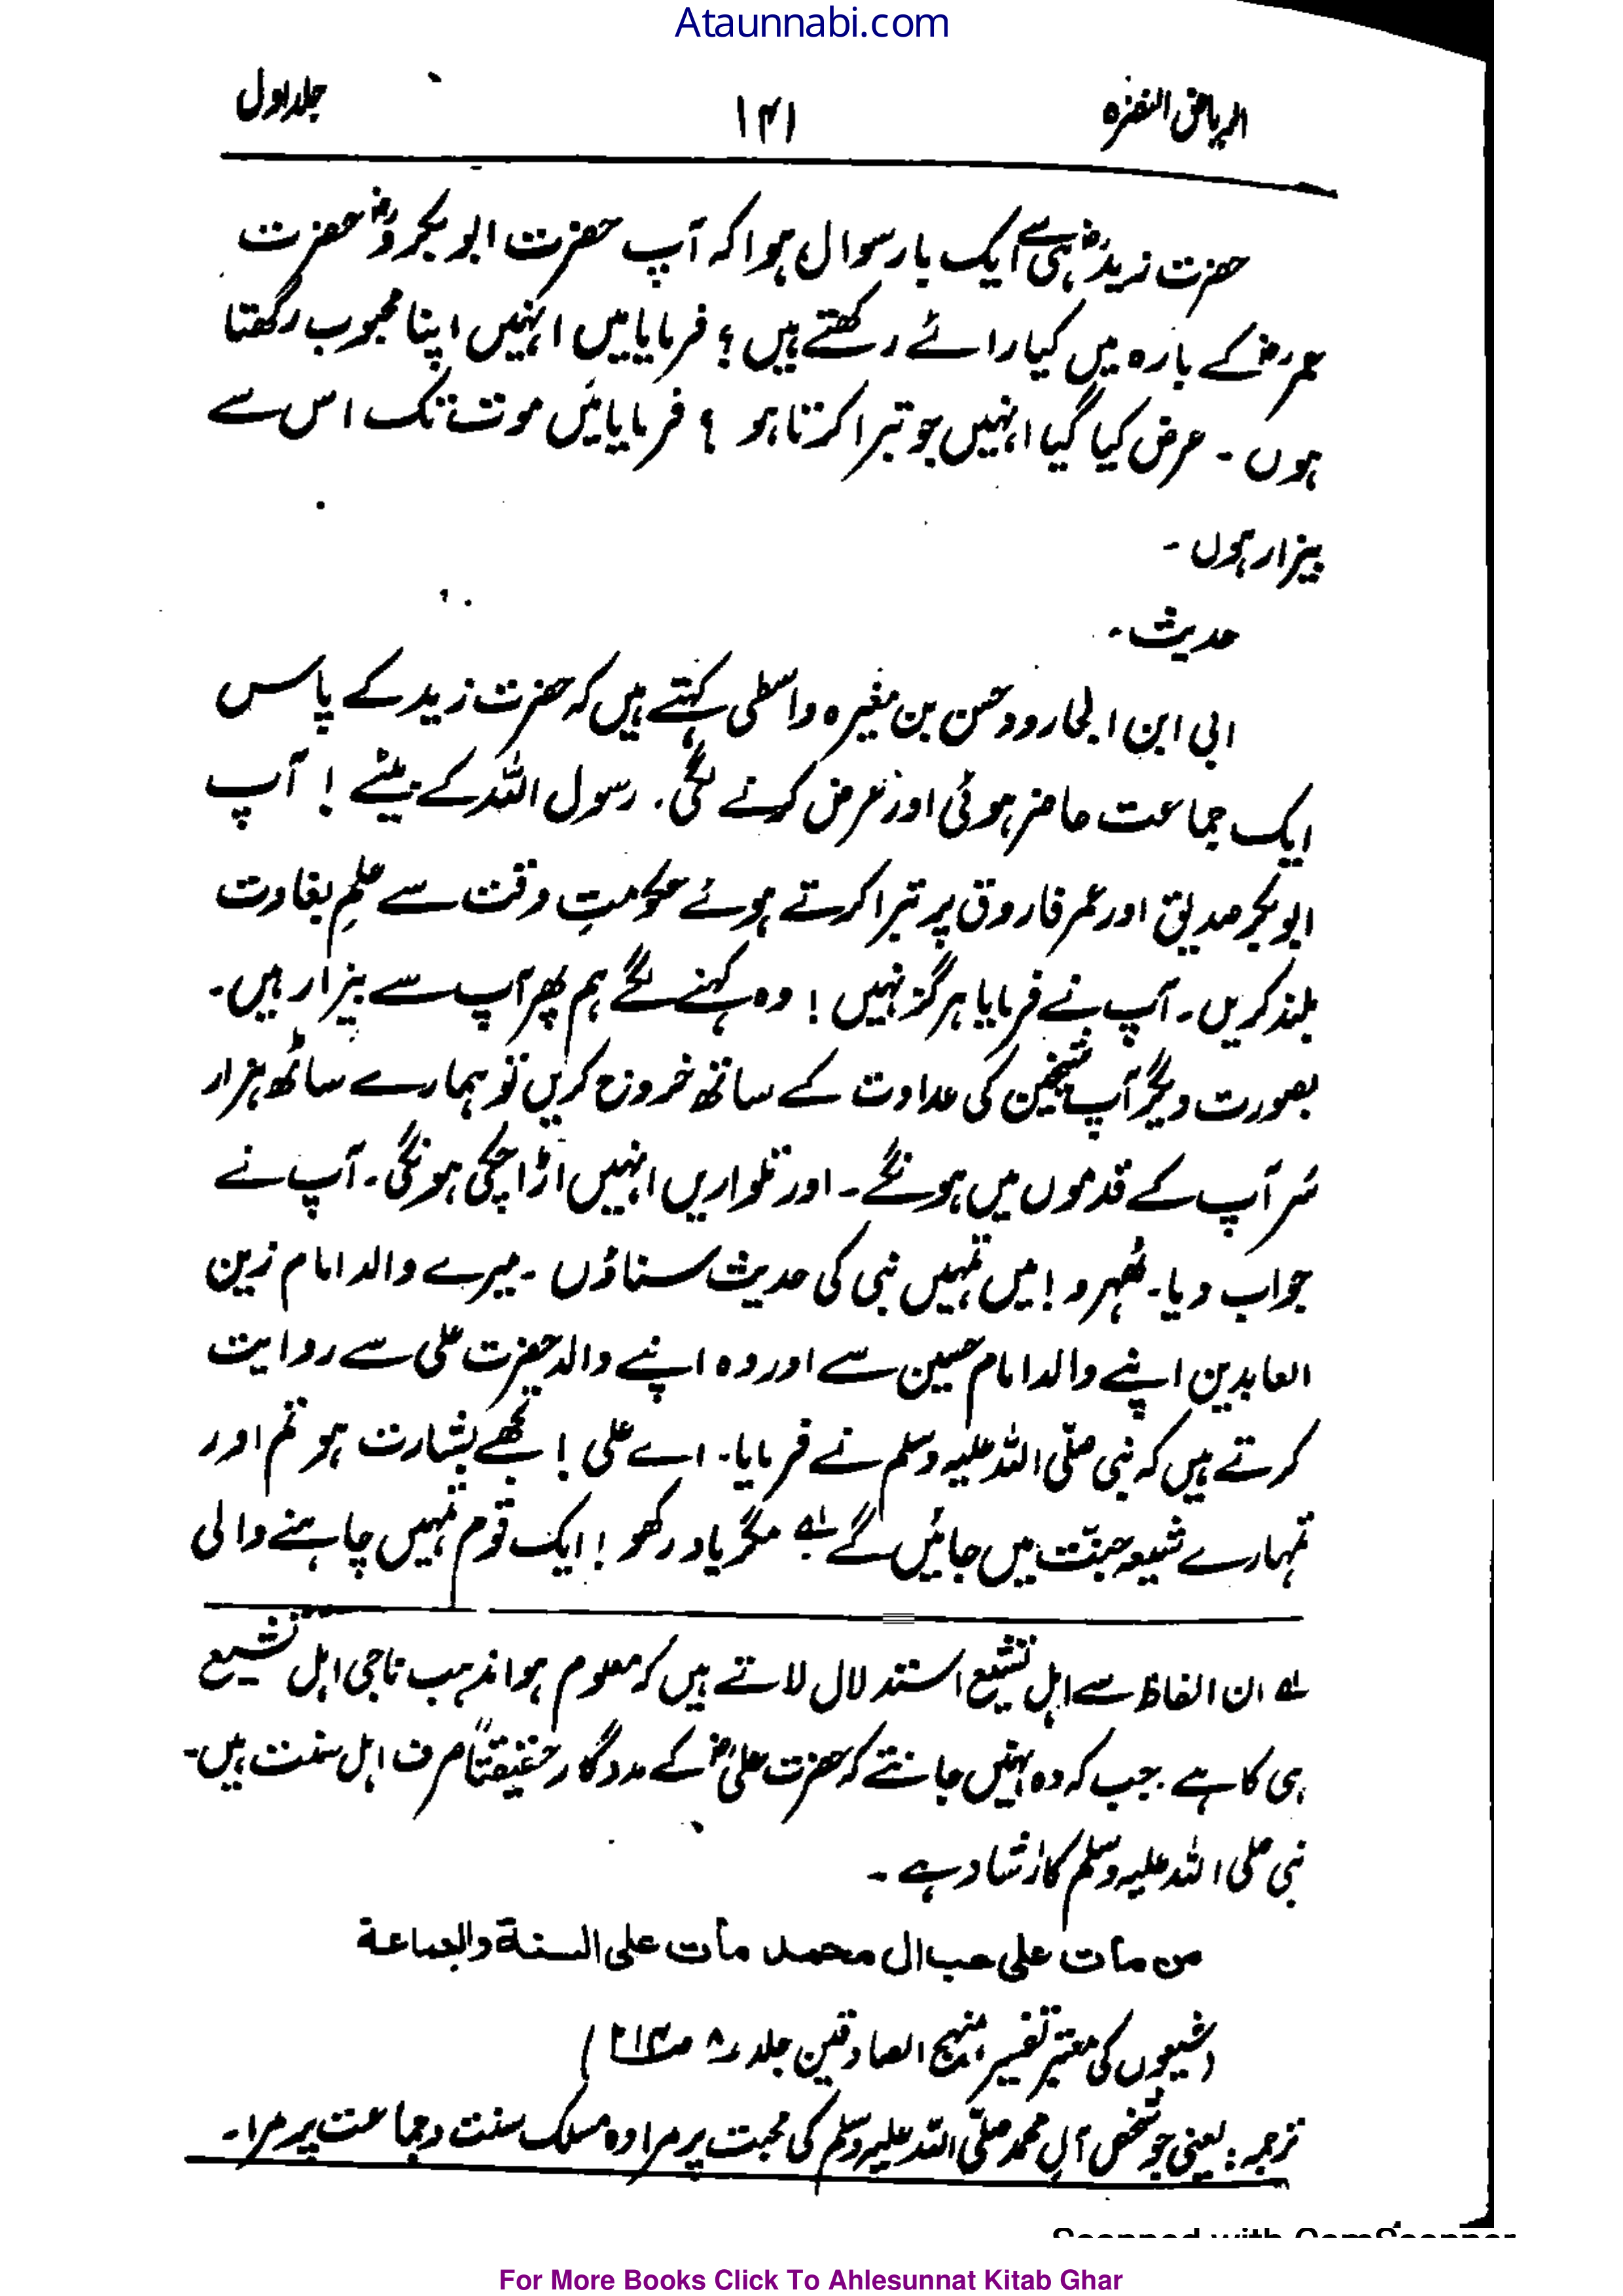 Ataunnabi.com
الریاض النضرہ ۱۴۱ جلد اول
حضرت زیدؓ ہی سے ایک بار سوال ہوا کہ آپ حضرت ابوبکرؓ و حضرت
عمرؓ کے بارہ میں کیا رائے رکھتے ہیں؟ فرمایا میں انہیں اپنا محبوب رکھتا
ہوں ۔ عرض کیا گیا انہیں جو تبرا کرتا ہو ؟ فرمایا میں موت تک اس سے
بیزار ہوں ۔
حدیث ۔
ابی ابن الجارود حسن بن مغیرہ واسطی کہتے ہیں کہ حضرت زید کے پاس
ایک جماعت حاضر ہوئی اور عرض کرنے لگی ۔ رسول اللہ کے بیٹے ! آپ
ابوبکر صدیق اور عمر فاروق پر تبرا کرتے ہوئے حکومتِ وقت سے علمِ بغاوت
بلند کریں ۔ آپ نے فرمایا ہرگز نہیں ! وہ کہنے لگے ہم پھر آپ سے بیزار ہیں ۔
بصورت دیگر آپ شیخین کی عداوت کے ساتھ خروج کریں تو ہمارے ساٹھ ہزار
سَر آپ کے قدموں میں ہونگے ۔ اور تلواریں انہیں اڑا چکی ہونگی ۔ آپ نے
جواب دیا ۔ ٹھہرو ! میں تمہیں نبی کی حدیث سناؤں ۔ میرے والد امام زین
العابدین اپنے والد امام حسین سے اور وہ اپنے والد حضرت علی سے روایت
کرتے ہیں کہ نبی صلّی اللہ علیہ وسلم نے فرمایا ۔ اے علی ! تجھے بشارت ہو تم اور
تمہارے شیعہ جنّت میں جائیں گے ؎۱ مگر یاد رکھو ! ایک قوم تمہیں چاہنے والی
؎۱ ان الفاظ سے اہل تشیع استدلال لاتے ہیں کہ معلوم ہوا مذہب ناجی اہل تشیع
ہی کا ہے ۔ جب کہ وہ نہیں جانتے کہ حضرت علیؓ کے مددگار حقیقتاً صرف اہل سنت ہیں ۔
نبی صلی اللہ علیہ وسلم کا ارشاد ہے ۔
من مات علی حب ال محمد مات علی السنة والجماعة
(شیعوں کی معتبر تفسیر منہج الصادقین جلد ۸ ص۲۱۴)
ترجمہ : یعنی جو شخص آلِ محمد صلّی اللہ علیہ وسلم کی محبت پر مرا وہ مسلک سنت وجماعت پر مرا ۔
Scanned with CamScanner
For More Books Click To Ahlesunnat Kitab Ghar